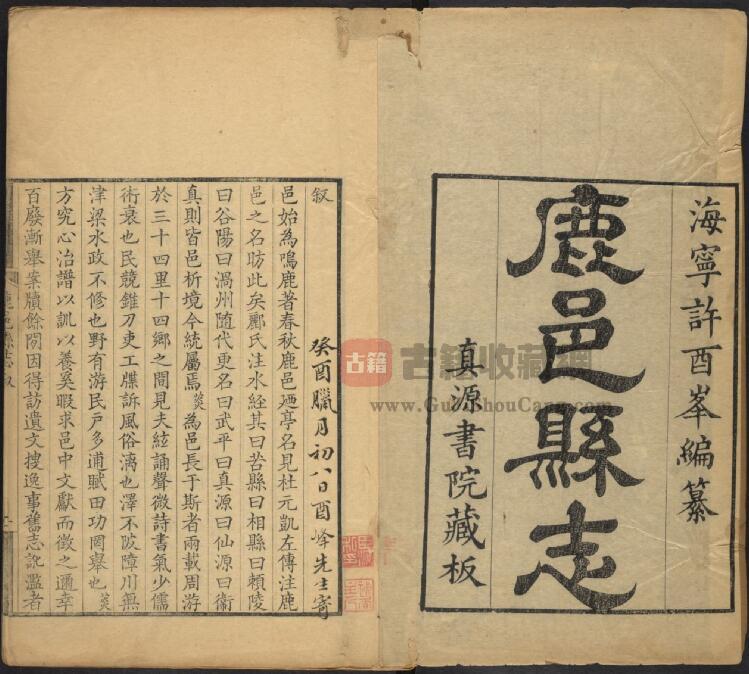 海寧許酉峯編纂
鹿邑縣志
真源書院藏板
癸酉臘月初八日酉峰先生寄
叙
邑始為鳴鹿著春秋鹿邑廼亭名見杜元凱左傳注鹿
邑之名昉此矣酈氏注水經其曰苦縣曰相縣曰賴陵
曰谷陽曰渦州隨代更名曰武平曰真源曰仙源曰衛
真則皆邑析境今統屬焉菼為邑長于斯者兩載周游
於三十四里十四鄉之間見夫絃誦聲微詩書氣少儒
術衰也民競錐刀吏工牒訴風俗漓也澤不陂障川無
津梁水政不修也野有游民戶多逋賦田功罔舉也菼
方究心治譜以訓以養奚暇求邑中文獻而徵之邇幸
百廢漸舉案牘餘閒因得訪遺文搜逸事舊志訛濫者
鹿邑縣志 叙
古籍
古籍收藏網
www.GuJiShouCang.com